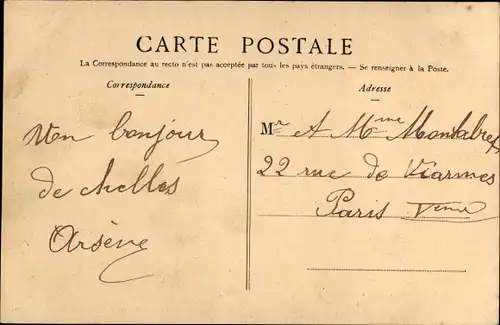 CARTE POSTALE
La Correspondance au recto n'est pas acceptée par tous les pays étrangers. — Se renseigner à la Poste.
Correspondance
Adresse
Mon bonjour
de Chelles
Arsène
Mr A Mme
22 rue de Viarmes
Paris